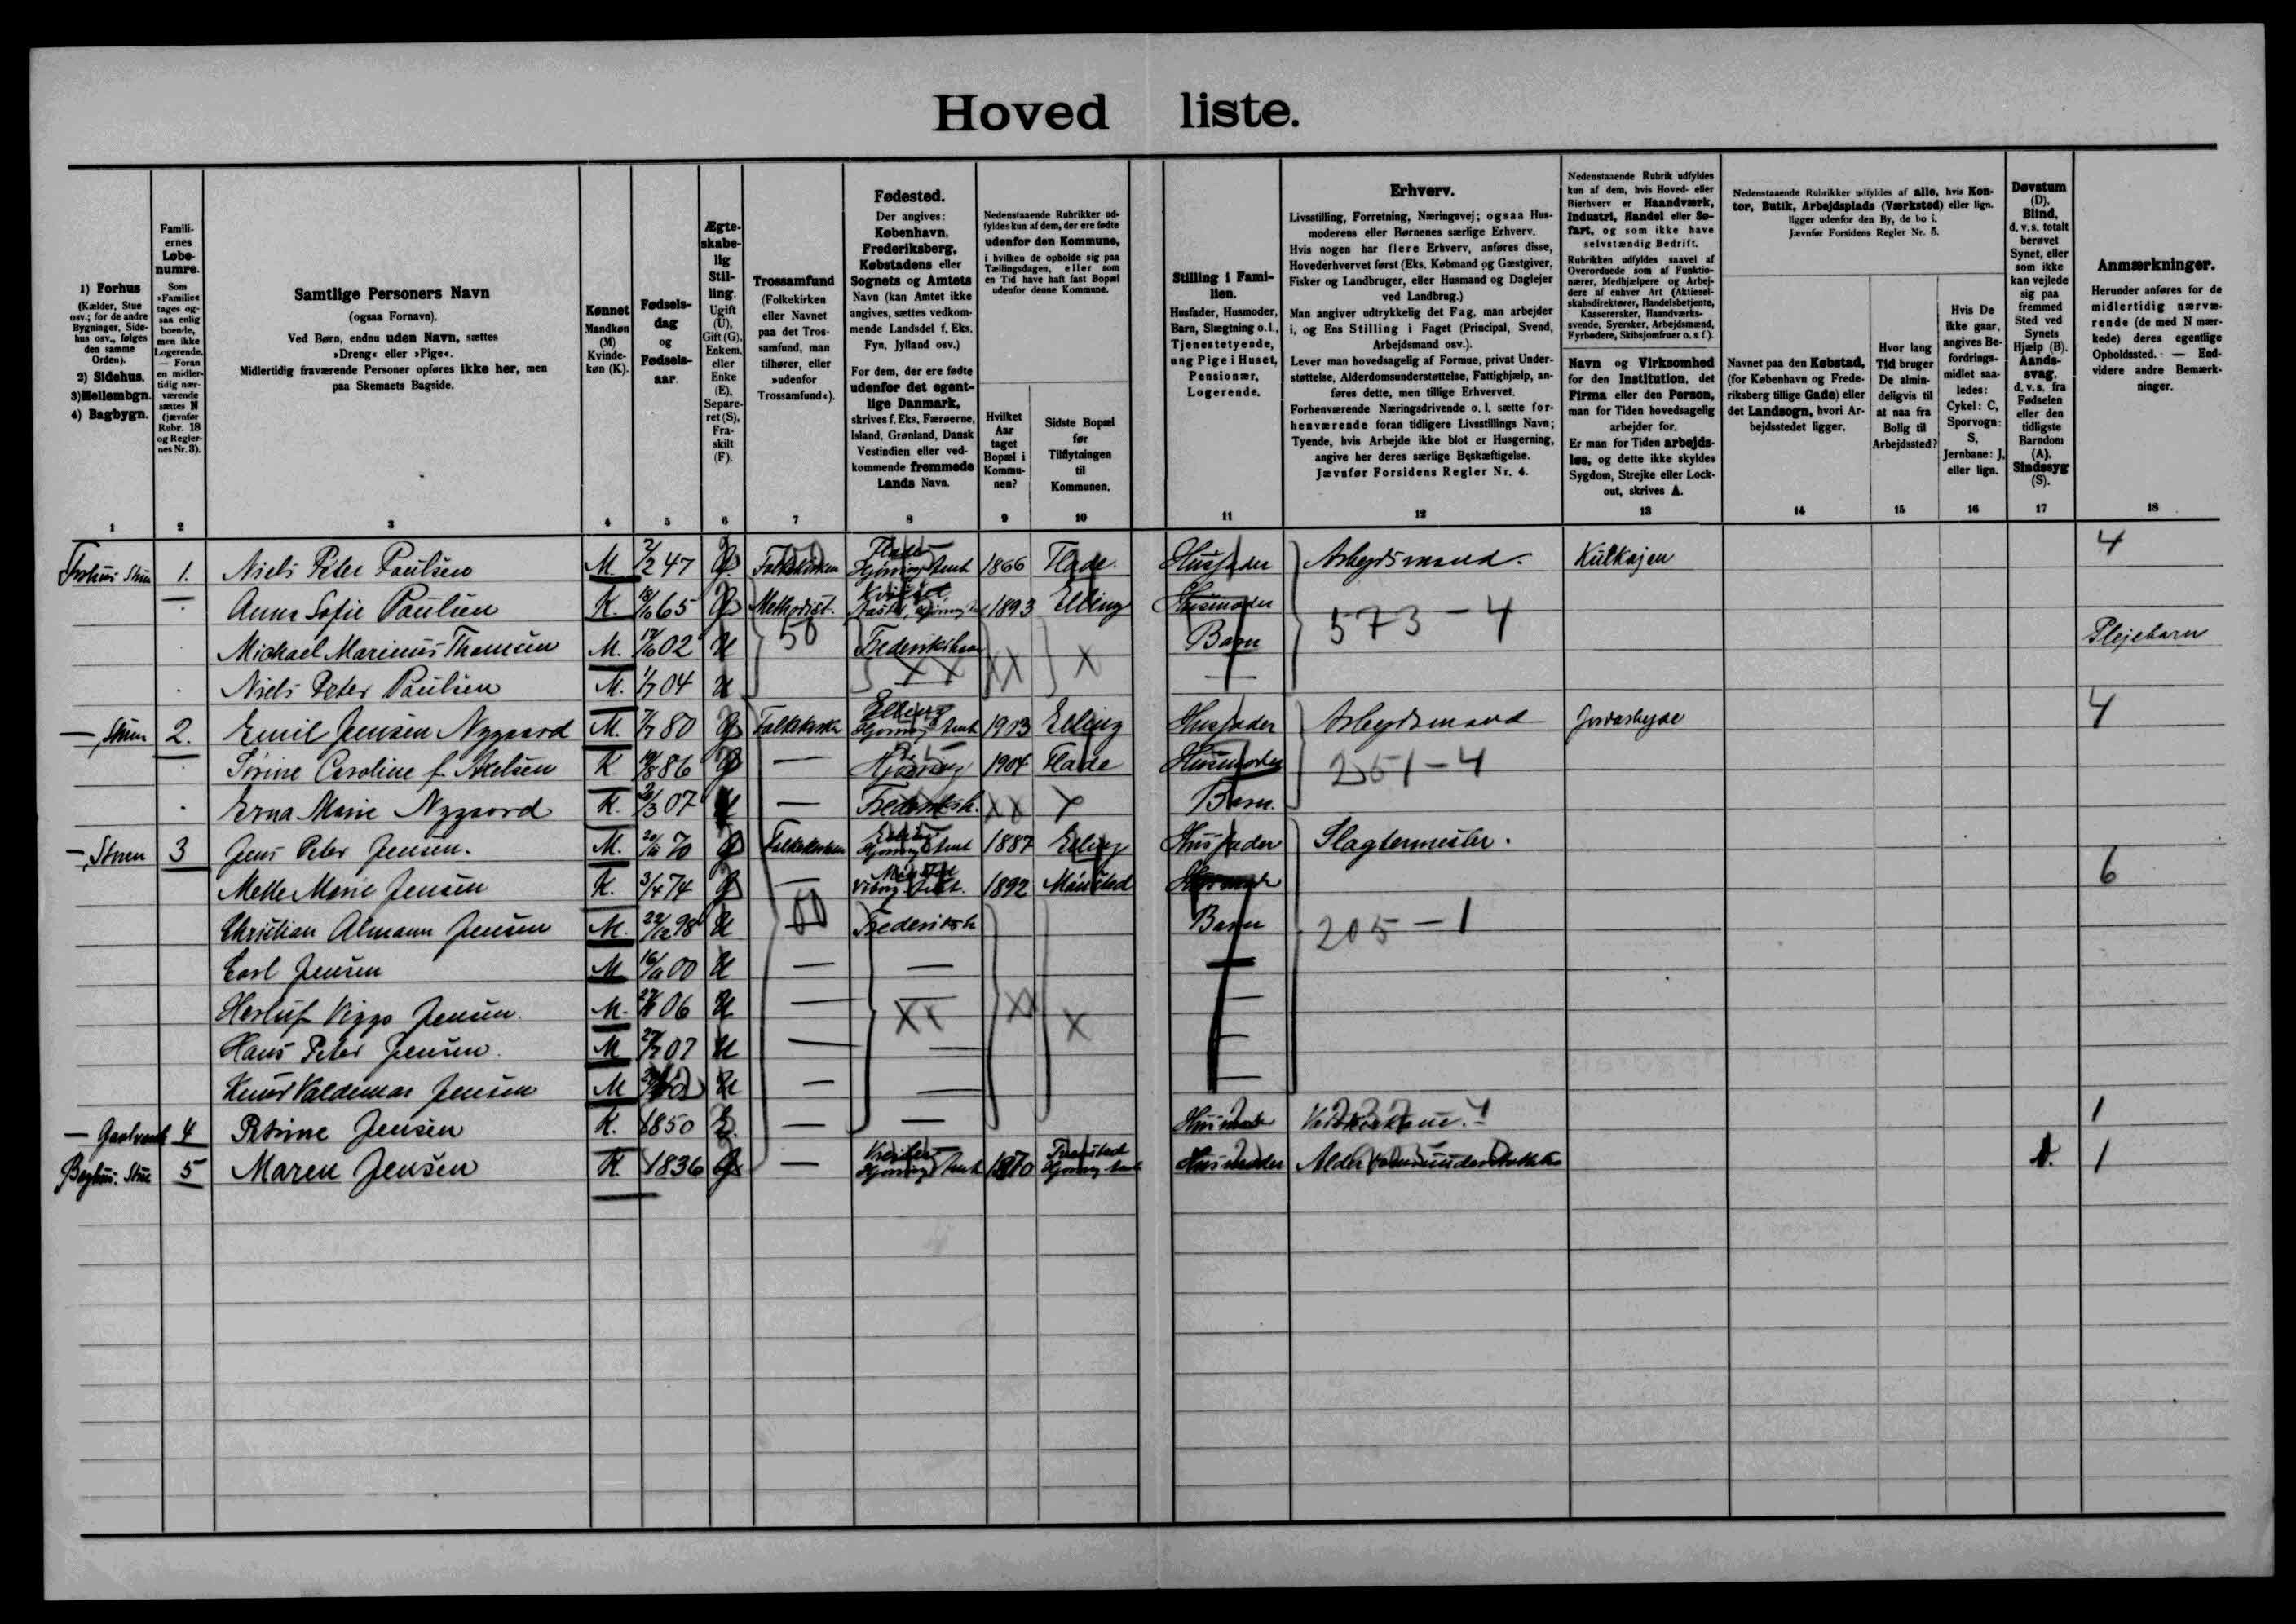 Hoved liste.
1) Forhus
(Kælder, Stue
osv.; for de andre
Bygninger, Side-
hus osv., følges
den samme
Orden).
2) Sidehus.
3) Mellembgn.
4) Bagbygn.
Famili-
ernes
Løbe-
numre.
Som
»Familie«
tages og-
saa enlig
boende,
men ikke
Logerende.
— Foran
en midler-
tidig nær-
værende
sættes N
(jævnfør
Rubr. 18
og Regler-
nes Nr. 3).
Samtlige Personers Navn
(ogsaa Fornavn).
Ved Børn, endnu uden Navn, sættes
»Dreng« eller »Pige«.
Midlertidig fraværende Personer opføres ikke her, men
paa Skemaets Bagside.
Kønnet
Mandkøn
(M)
Kvinde-
køn (K).
Fødsels-
dag
og
Fødsels-
aar.
Ægte-
skabe-
lig
Stil-
ling.
Ugift
(U),
Gift (G),
Enkem.
eller
Enke
(E),
Separe-
ret (S),
Fra-
skilt
(F).
Trossamfund
(Folkekirken
eller Navnet
paa det Tros-
samfund, man
tilhører, eller
»udenfor
Trossamfund«).
Fødested.
Der angives:
København,
Frederiksberg,
Købstadens eller
Sognets og Amtets
Navn (kan Amtet ikke
angives, sættes vedkom-
mende Landsdel f. Eks.
Fyn, Jylland osv.)
For dem, der ere fødte
udenfor det egent-
lige Danmark,
skrives f. Eks. Færøerne,
Island, Grønland, Dansk
Vestindien eller ved-
kommende fremmede
Lands Navn.
Nedenstaaende Rubrikker ud-
fyldes kun af dem, der ere fødte
udenfor den Kommune,
i hvilken de opholde sig paa
Tællingsdagen, eller som
en Tid have haft fast Bopæl
udenfor denne Kommune.
Hvilket
Aar
taget
Bopæl i
Kommu-
nen?
Sidste Bopæl
før
Tilflytningen
til
Kommunen.
Stilling i Fami-
lien.
Husfader, Husmoder,
Barn, Slægtning o. l.,
Tjenestetyende,
ung Pige i Huset,
Pensionær,
Logerende.
Erhverv.
Livsstilling, Forretning, Næringsvej; ogsaa Hus-
moderens eller Børnenes særlige Erhverv.
Hvis nogen har flere Erhverv, anføres disse,
Hovederhvervet først (Eks. Købmand og Gæstgiver,
Fisker og Landbruger, eller Husmand og Daglejer
ved Landbrug.)
Man angiver udtrykkelig det Fag, man arbejder
i, og Ens Stilling i Faget (Principal, Svend,
Arbejdsmand osv.).
Lever man hovedsagelig af Formue, privat Under-
støttelse, Alderdomsunderstøttelse, Fattighjælp, an-
føres dette, men tillige Erhvervet.
Forhenværende Næringsdrivende o. l. sætte for-
henværende foran tidligere Livsstillings Navn;
Tyende, hvis Arbejde ikke blot er Husgerning,
angive her deres særlige Beskæftigelse.
Jævnfør Forsidens Regler Nr. 4.
Nedenstaaende Rubrik udfyldes
kun af dem, hvis Hoved- eller
Bierhverv er Haandværk,
Industri, Handel eller Sø-
fart, og som ikke have
selvstændig Bedrift.
Rubrikken udfyldes saavel af
Overordnede som af Funktio-
nærer, Medhjælpere og Arbej-
dere af enhver Art (Aktiesel-
skabsdirektører, Handelsbetjente,
Kasserersker, Haandværks-
svende, Syersker, Arbejdsmænd,
Fyrbødere, Skibsjomfruer o. s. f.).
Navn og Virksomhed
for den Institution, det
Firma eller den Person,
man for Tiden hovedsagelig
arbejder for.
Er man for Tiden arbejds-
løs, og dette ikke skyldes
Sygdom, Strejke eller Lock-
out, skrives A.
Nedenstaaende Rubrikker udfyldes af alle, hvis Kon-
tor, Butik, Arbejdsplads (Værksted) eller lign.
ligger udenfor den By, de bo i.
Jævnfør Forsidens Regler Nr. 5.
Navnet paa den Købstad,
(for København og Frede-
riksberg tillige Gade) eller
det Landsogn, hvori Ar-
bejdsstedet ligger.
Hvor lang
Tid bruger
De almin-
deligvis til
at naa fra
Bolig til
Arbejdssted?
Hvis De
ikke gaar,
angives Be-
fordrings-
midlet saa-
ledes:
Cykel: C,
Sporvogn:
S,
Jernbane: J,
eller lign.
Døvstum
(D).
Blind,
d. v. s. totalt
berøvet
Synet, eller
som ikke
kan vejlede
sig paa
fremmed
Sted ved
Synets
Hjælp (B).
Aands-
svag,
d. v. s. fra
Fødselen
eller den
tidligste
Barndom
(A).
Sindssyg
(S).
Anmærkninger.
Herunder anføres for de
midlertidig nærvæ-
rende (de med N mær-
kede) deres egentlige
Opholdssted. — End-
videre andre Bemærk-
ninger.
1 2 3 4 5 6 7 8 9 10 11 12 13 14 15 16 17 18
1. Niels Peter Paulsen M. 2/2 47 G Folkekirken Flade Hjørring Amt 1866 Flade. Husfader Arbejdsmand. Kulkajen 4
Anna Sofie Paulsen K. 65 G Methodist. 1893 Elling Husmoder 573-4
Michael Marinus Thomsen M. 02 U 50 Frederikshavn Barn Plejebarn
Niels Peter Paulsen M. 1/7 04 U XX XX X —
— Stuen 2. Emil Jensen Nygaard M. 7/7 80 G Folkekirke Elling Hjørring Amt 1913 Elling Husfader Arbejdsmand Jordarbejde 4
Sørine Caroline f. Axelsen K. 86 G — Hjørring 1904 Flade Husmoder 251-4
Erna Marie Nygaard K. 07 U — Frederiksh. XX X Barn.
— Stuen 3 Jens Peter Jensen. M. 70 G Folkekirken Elling Hjørring Amt 1887 Elling Husfader Slagtermester.
Mette Marie Jensen K. 3/4 74 G — Viborg Amt. 1892 Mønsted Husmoder 6
Christian Almann Jensen M. 22/12 98 U 50 Frederiksh Barn 205-1
Carl Jensen M 00 U — — —
Herluf Viggo Jensen. M. 06 U — — XX XX X —
Hans Peter Jensen. M 27/7 07 U — — —
Knud Valdemar Jensen M U — — —
— 4 Petrine Jensen K. 1850 E. — — Husmoder Vaskekone. 232-4 1
Baghus. Stue 5 Maren Jensen K 1836 G — Hjørring Amt 1870 Hjørring Amt Husmoder Alderdomsunderstøttelse 1